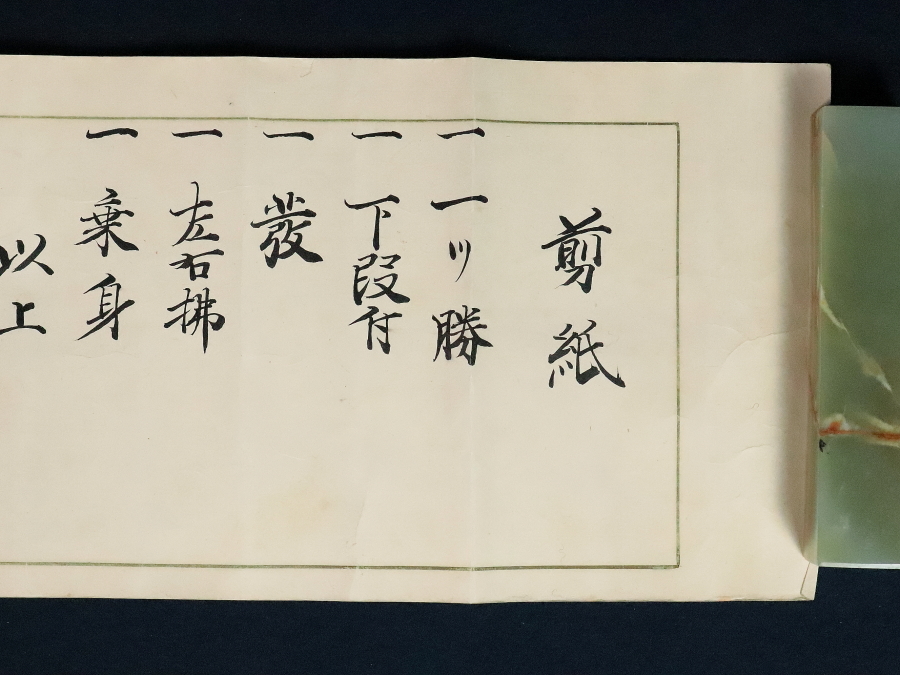 剪紙
一 一ツ勝
一 下段付
一 發
一 左右拂
一 乗身
以上